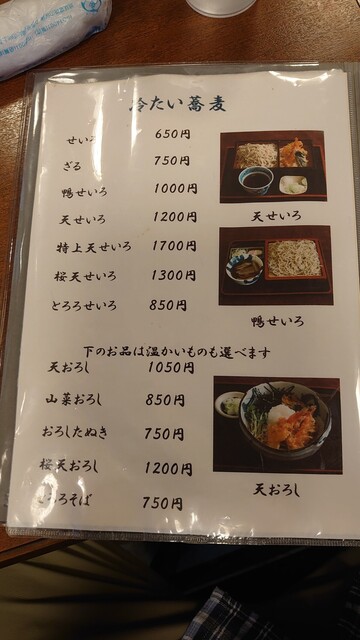 冷たい蕎麦
せいろ 650円
ざる 750円
鴨せいろ 1000円
天せいろ 1200円
特上天せいろ 1700円
桜天せいろ 1300円
とろろせいろ 850円
天せいろ
鴨せいろ
下のお品は温かいものも選べます
天おろし 1050円
山菜おろし 850円
おろしたぬき 750円
桜天おろし 1200円
とろろそば 750円
天おろし